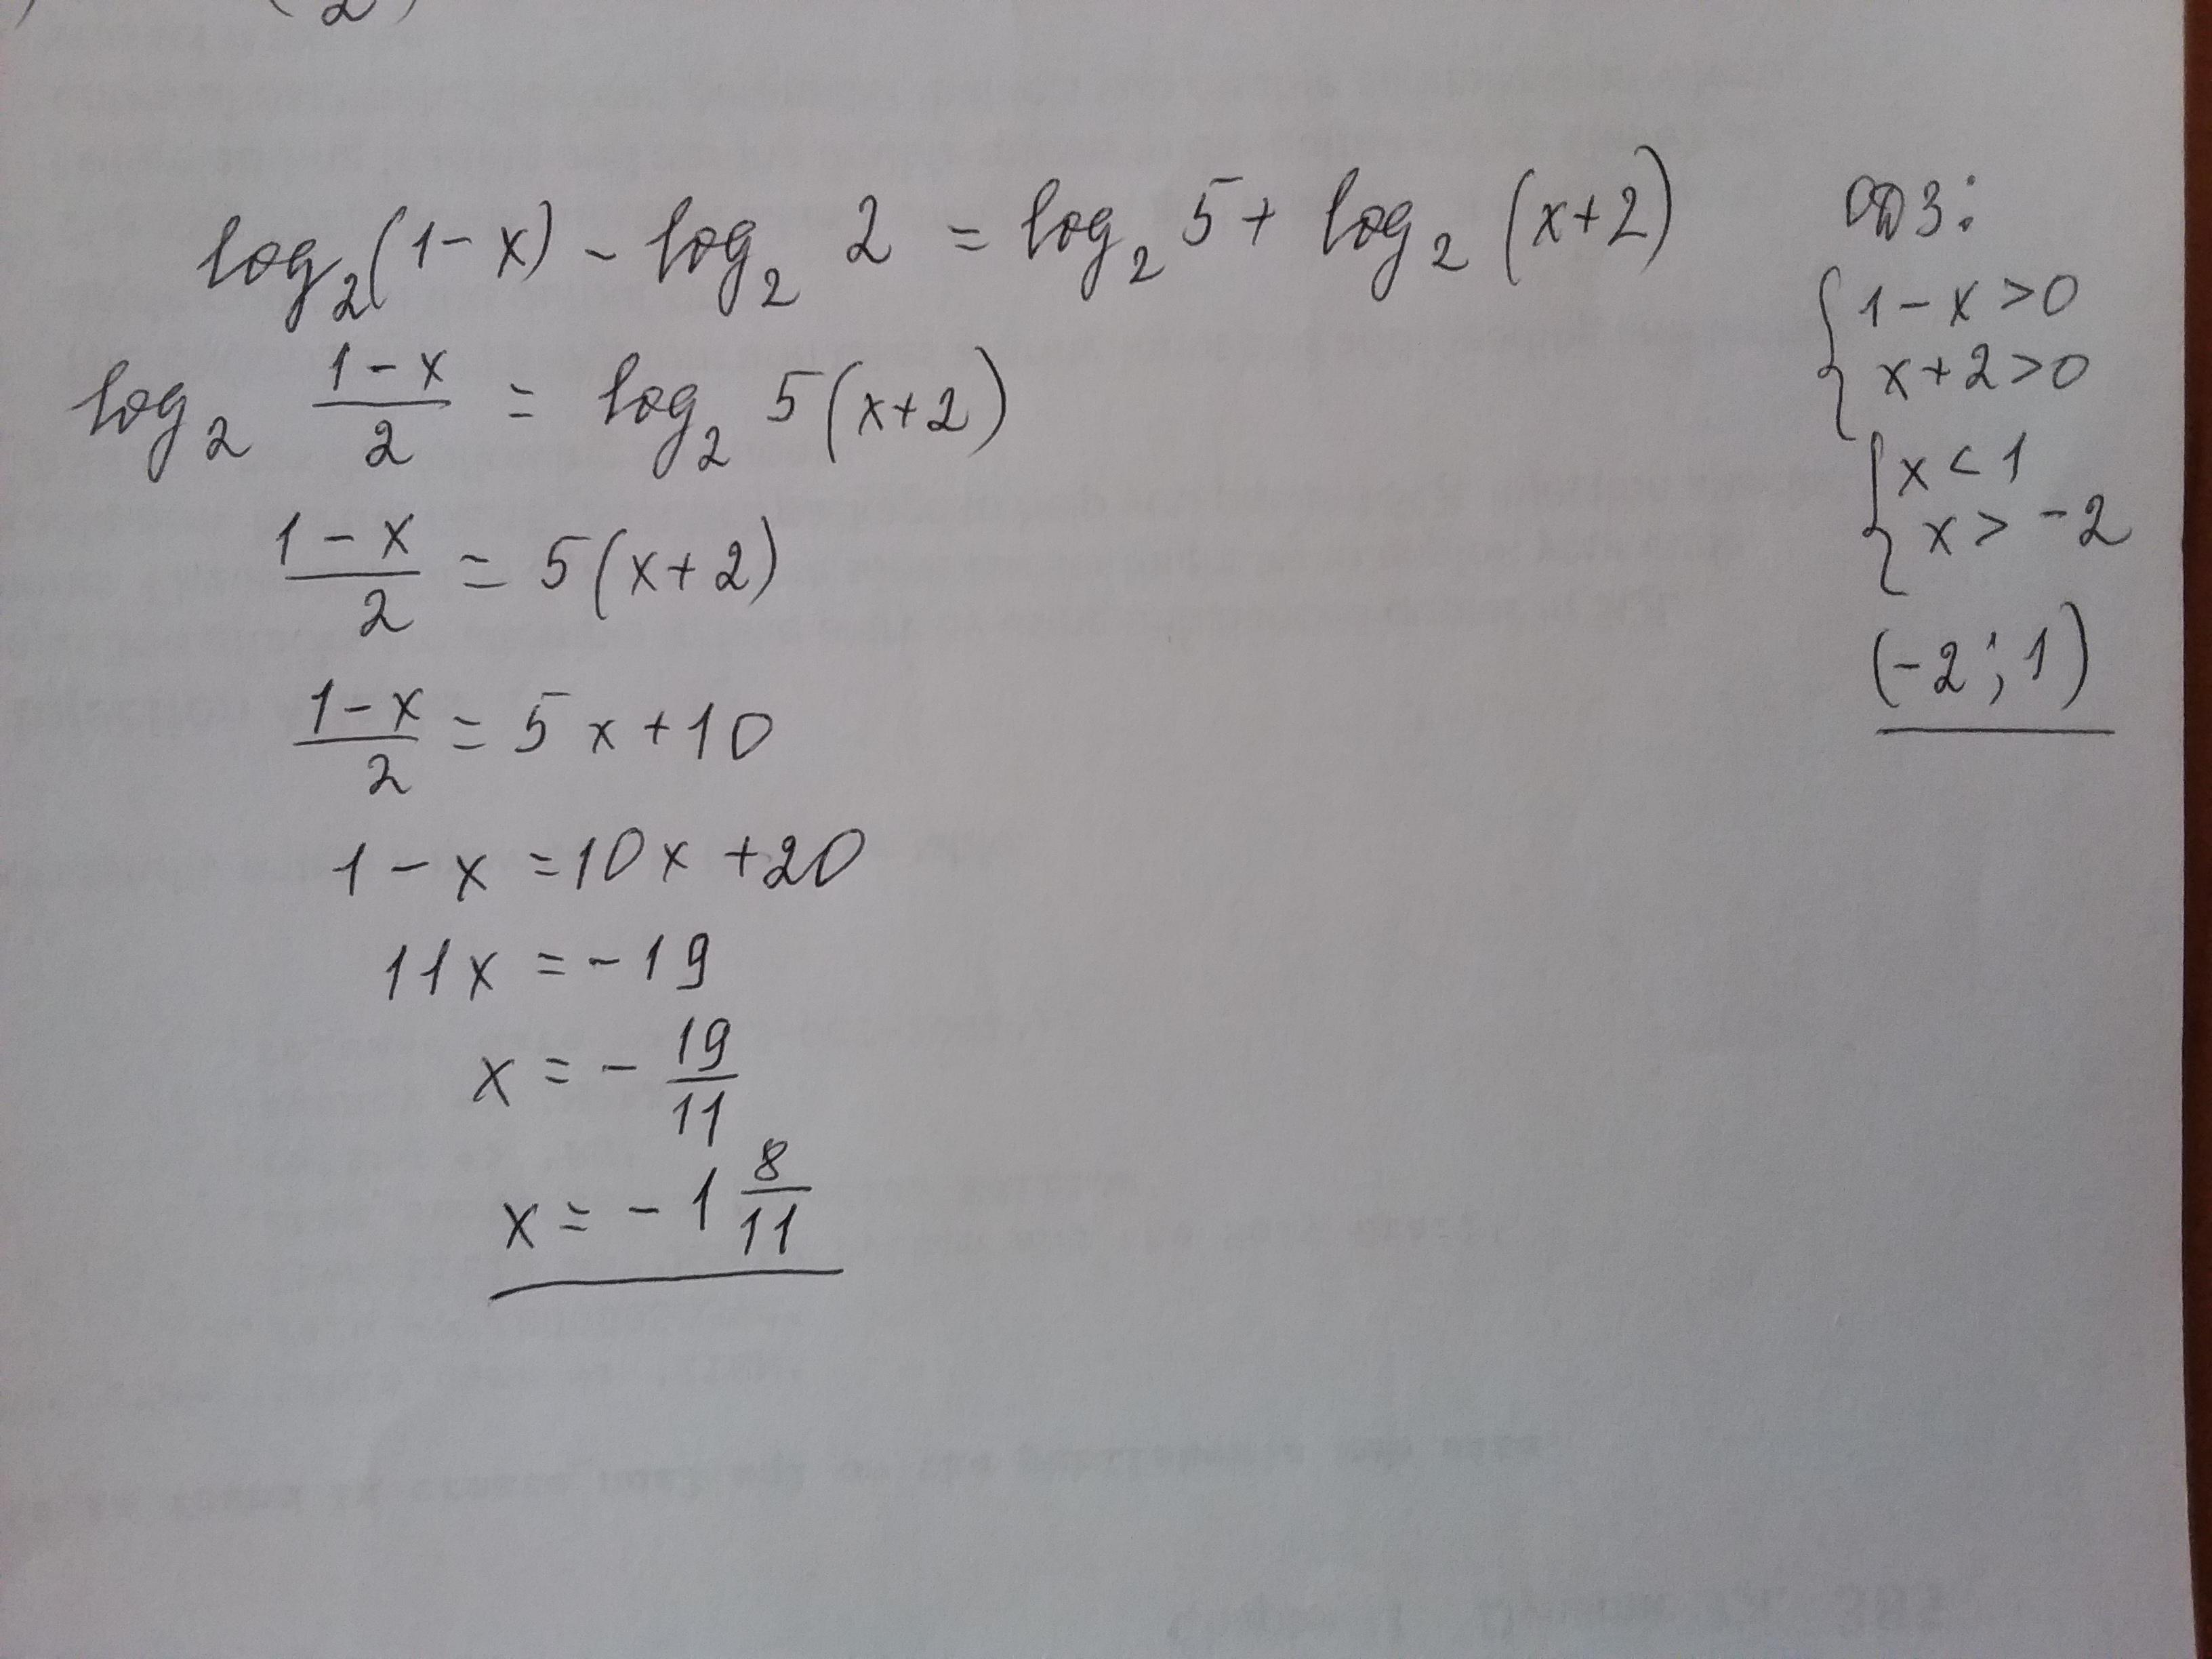 (2)
log₂(1-x) - log₂ 2 = log₂ 5 + log₂ (x+2)
log₂ (1-x)/2 = log₂ 5(x+2)
(1-x)/2 = 5(x+2)
(1-x)/2 = 5x+10
1-x = 10x+20
11x = -19
x = - 19/11
x = -1 8/11
ОДЗ:
{ 1-x>0
x+2>0
{ x<1
x>-2
(-2; 1)